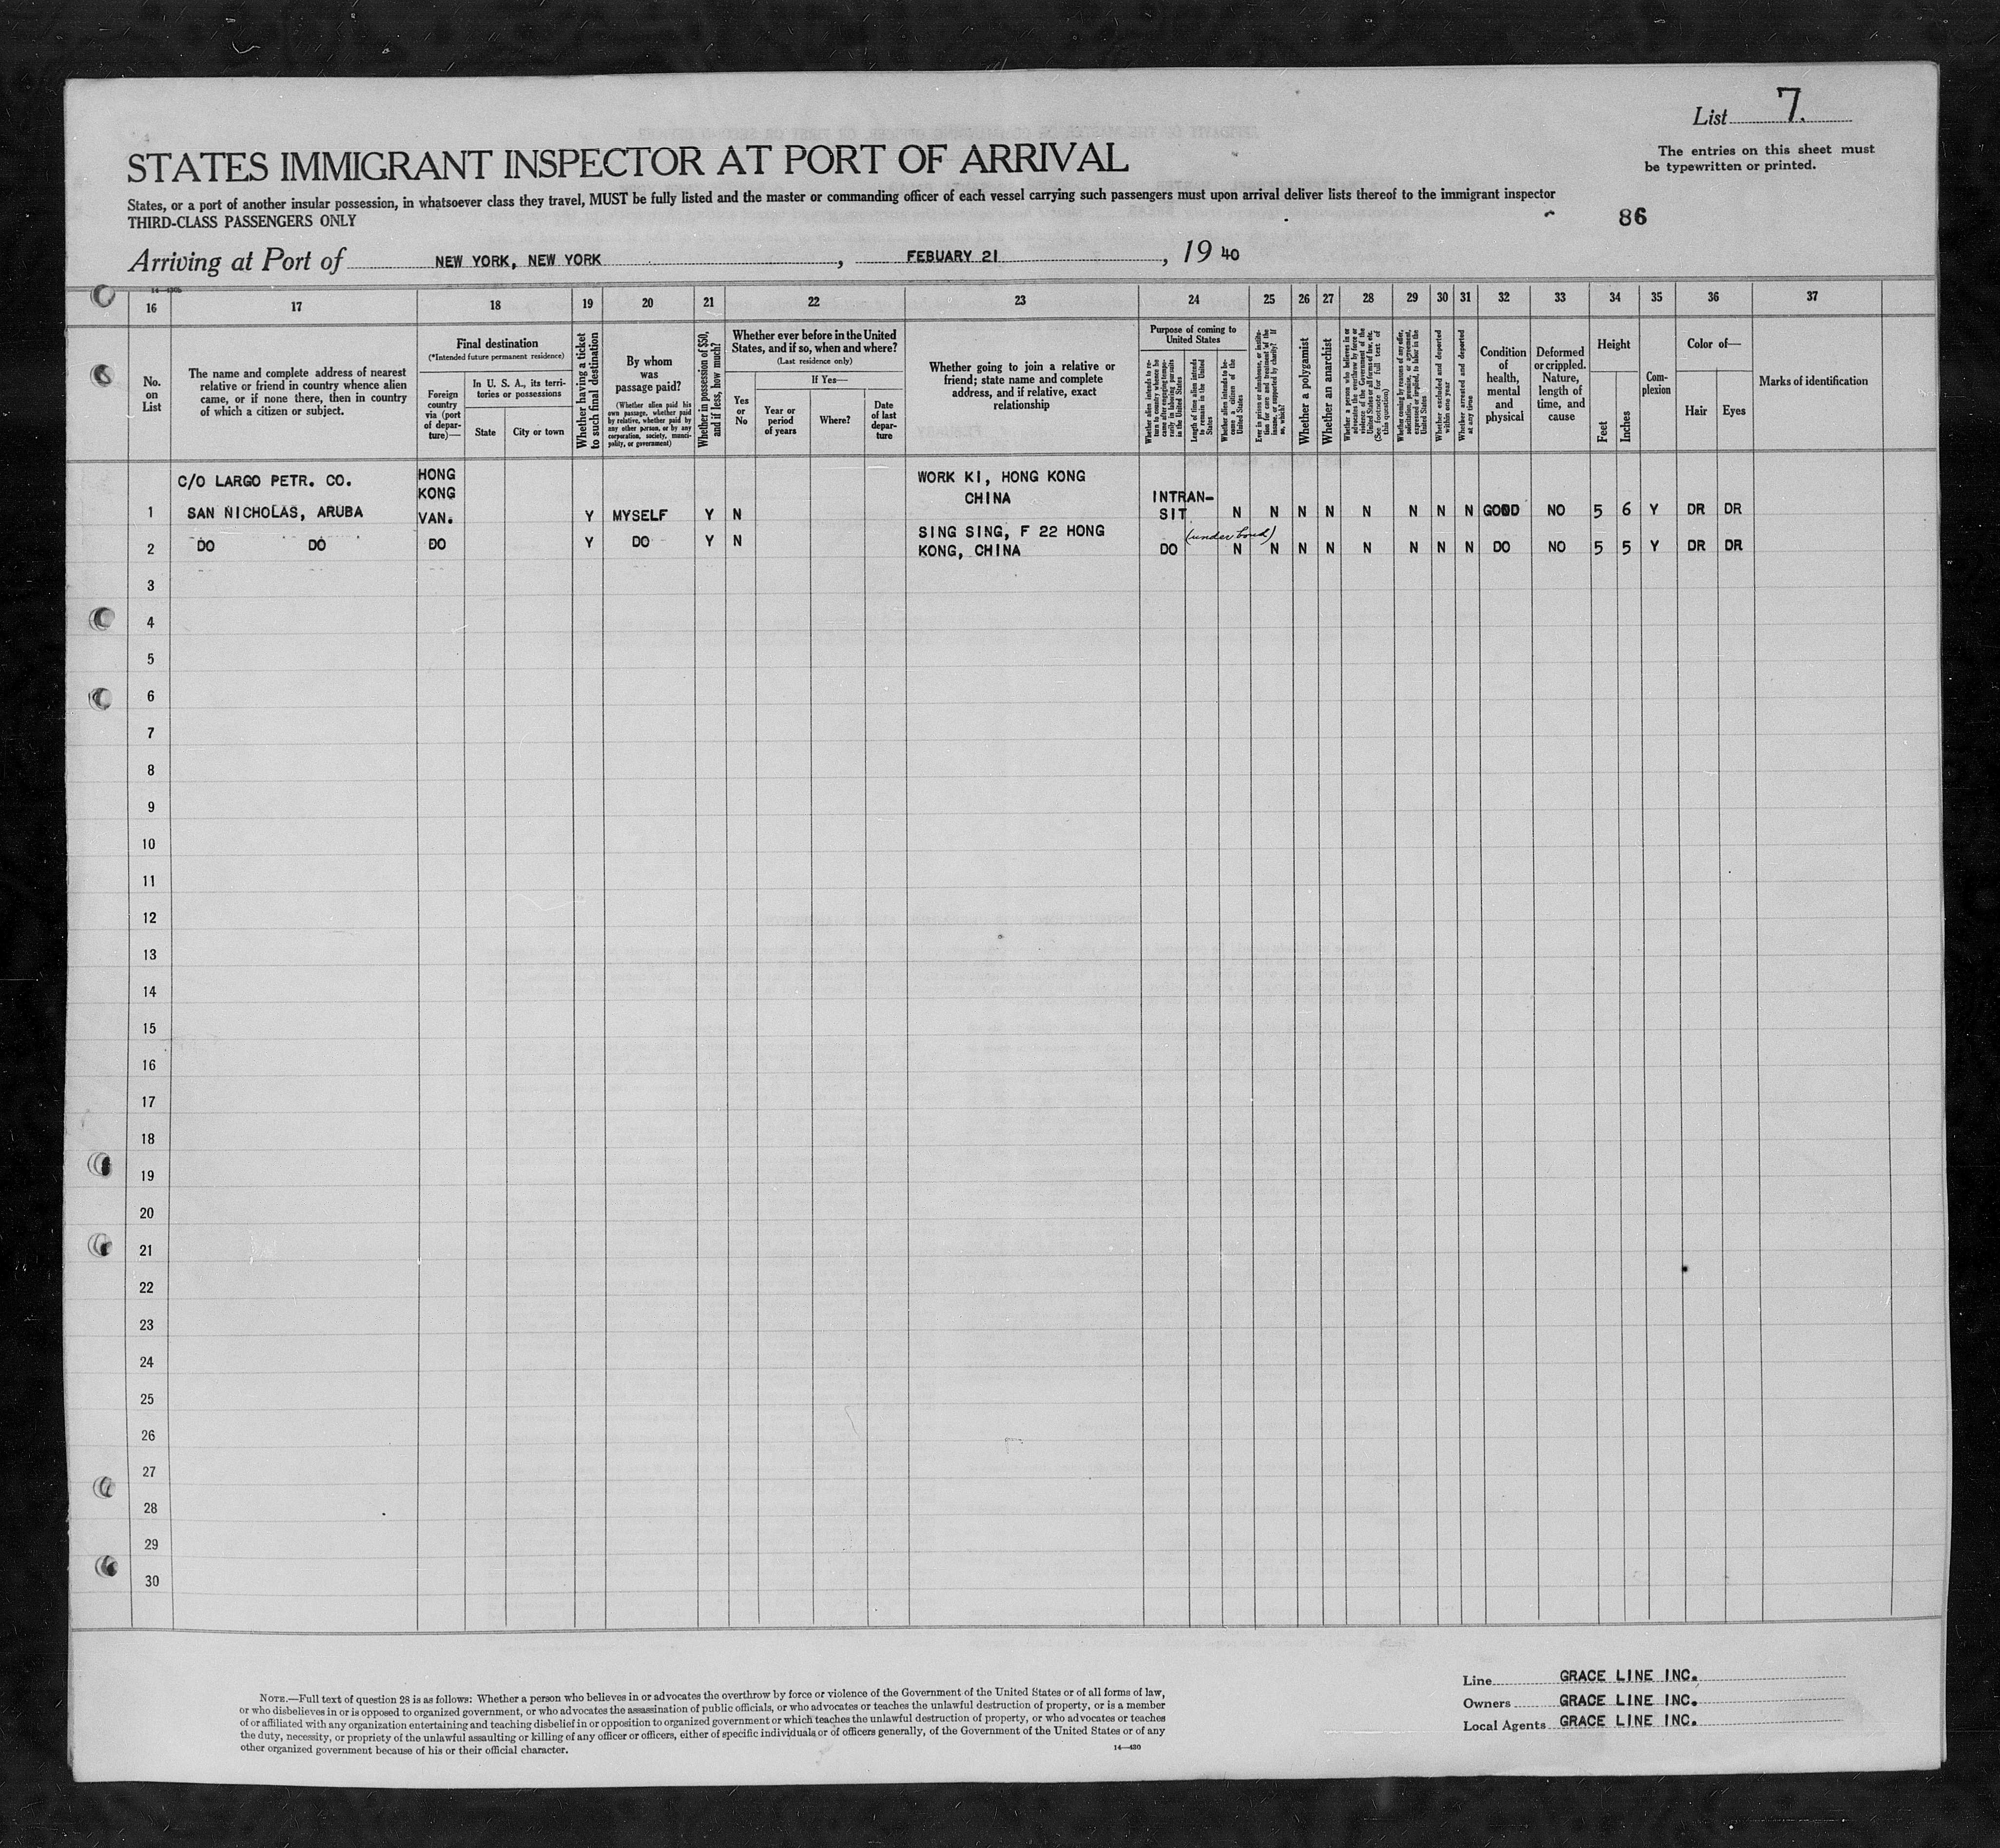 List 7.
The entries on this sheet must
be typewritten or printed.
STATES IMMIGRANT INSPECTOR AT PORT OF ARRIVAL
States, or a port of another insular possession, in whatsoever class they travel, MUST be fully listed and the master or commanding officer of each vessel carrying such passengers must upon arrival deliver lists thereof to the immigrant inspector
THIRD-CLASS PASSENGERS ONLY
86
Arriving at Port of NEW YORK, NEW YORK, FEBUARY 21, 19 40
16 17 18 19 20 21 22 23 24 25 26 27 28 29 30 31 32 33 34 35 36 37
No.
on
List
The name and complete address of nearest
relative or friend in country whence alien
came, or if none there, then in country
of which a citizen or subject.
Final destination
(*Intended future permanent residence)
Foreign
country
via (port
of depar-
ture)—
In U. S. A., its terri-
tories or possessions
State
City or town
Whether having a ticket
to such final destination
By whom
was
passage paid?
(Whether alien paid his
own passage, whether paid
by relative, whether paid by
any other person, or by any
corporation, society, munici-
pality, or government)
Whether in possession of $50,
and if less, how much?
Whether ever before in the United
States, and if so, when and where?
(Last residence only)
Yes
or
No
If Yes—
Year or
period
of years
Where?
Date
of last
depar-
ture
Whether going to join a relative or
friend; state name and complete
address, and if relative, exact
relationship
Purpose of coming to
United States
Whether alien intends to re-
turn to country whence he
came after engaging tempo-
rarily in laboring pursuits
in the United States
Length of time alien intends
to remain in the United
States
Whether alien intends to be-
come a citizen of the
United States
Ever in prison or almshouse, or institu-
tion for care and treatment of the
insane, or supported by charity? If
so, which?
Whether a polygamist
Whether an anarchist
Whether a person who believes in or
advocates the overthrow by force or
violence of the Government of the
United States or all forms of law, etc.
(See footnote for full text of
this question)
Whether coming by reason of any offer,
solicitation, promise, or agreement,
expressed or implied, to labor in the
United States
Whether excluded and deported
within one year
Whether arrested and deported
at any time
Condition
of
health,
mental
and
physical
Deformed
or crippled.
Nature,
length of
time, and
cause
Height
Feet
Inches
Com-
plexion
Color of—
Hair
Eyes
Marks of identification
C/O LARGO PETR. CO. HONG WORK KI, HONG KONG
KONG CHINA INTRAN-
1 SAN NICHOLAS, ARUBA VAN. Y MYSELF Y N SIT N N N N N N N N GOOD NO 5 6 Y DR DR
SING SING, F 22 HONG (under bond)
2 DO DO DO Y DO Y N KONG, CHINA DO N N N N N N N N DO NO 5 5 Y DR DR
3
4
5
6
7
8
9
10
11
12
13
14
15
16
17
18
19
20
21
22
23
24
25
26
27
28
29
30
NOTE.—Full text of question 28 is as follows: Whether a person who believes in or advocates the overthrow by force or violence of the Government of the United States or of all forms of law,
or who disbelieves in or is opposed to organized government, or who advocates the assassination of public officials, or who advocates or teaches the unlawful destruction of property, or is a member
of or affiliated with any organization entertaining and teaching disbelief in or opposition to organized government or which teaches the unlawful destruction of property, or who advocates or teaches
the duty, necessity, or propriety of the unlawful assaulting or killing of any officer or officers, either of specific individuals or of officers generally, of the Government of the United States or of any
other organized government because of his or their official character.
14—430
Line GRACE LINE INC.
Owners GRACE LINE INC.
Local Agents GRACE LINE INC.